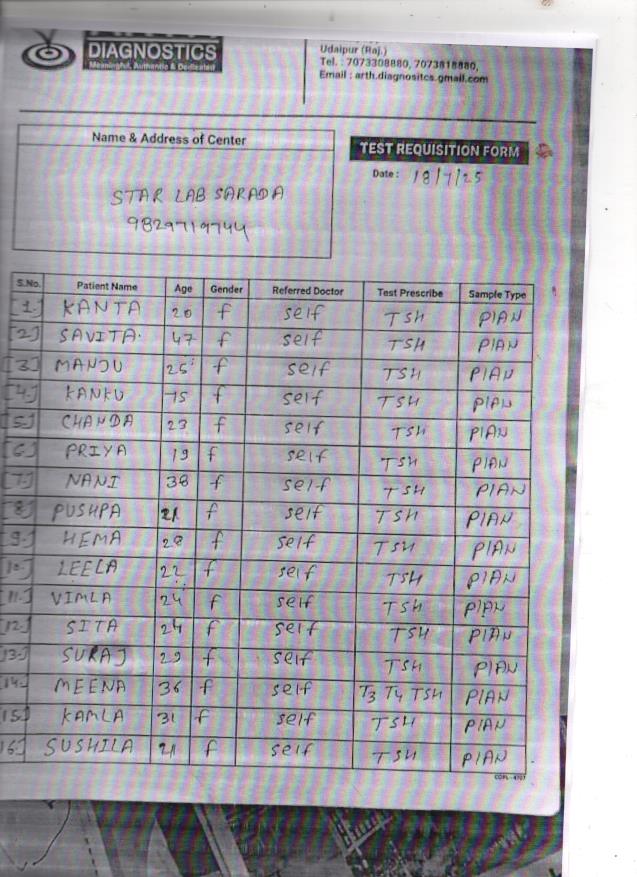 DIAGNOSTICS
Meaningful, Authentic & Dedicated
Udaipur (Raj.)
Tel. : 7073308880, 7073818880,
Email : arth.diagnositcs.gmail.com
Name & Address of Center
TEST REQUISITION FORM
Date : 18/7/25
STAR LAB SARADA
9829719744
S.No. Patient Name Age Gender Referred Doctor Test Prescribe Sample Type
[1.] KANTA 20 f self TSH PIAN
[2.] SAVITA 47 f self TSH PIAN
[3.] MANJU 25 f self TSH PIAN
[4.] KANKU 75 f self TSH PIAN
[5.] CHANDA 23 f self TSH PIAN
[6.] PRIYA 19 f self TSH PIAN
[7.] NANI 38 f self TSH PIAN
[8.] PUSHPA 21 f self TSH PIAN
[9.] HEMA 28 f self TSH PIAN
10.] LEELA 22 f self TSH PIAN
[11.] VIMLA 24 f self TSH PIAN
[12.] SITA 24 f self TSH PIAN
[13.] SURAJ 29 f self TSH PIAN
[14.] MEENA 36 f self T3 T4 TSH PIAN
[15.] KAMLA 31 f self TSH PIAN
16.] SUSHILA 21 f self TSH PIAN